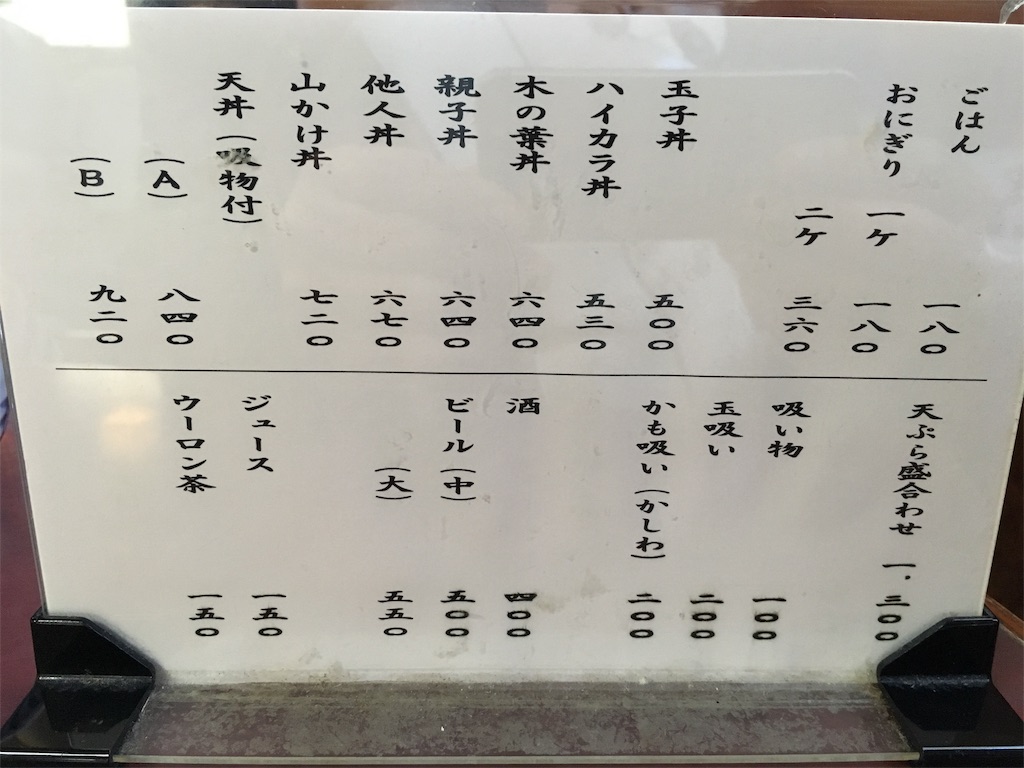 ごはん 一八〇
おにぎり 一ケ 一八〇
二ケ 三六〇
玉子丼 五〇〇
ハイカラ丼 五三〇
木の葉丼 六四〇
親子丼 六四〇
他人丼 六七〇
山かけ丼 七二〇
天丼(吸物付)
(A) 八四〇
(B) 九二〇
天ぷら盛合わせ 一.三〇〇
吸い物 一〇〇
玉吸い 二〇〇
かも吸い(かしわ) 二〇〇
酒 四〇〇
ビール(中) 五〇〇
(大) 五五〇
ジュース 一五〇
ウーロン茶 一五〇